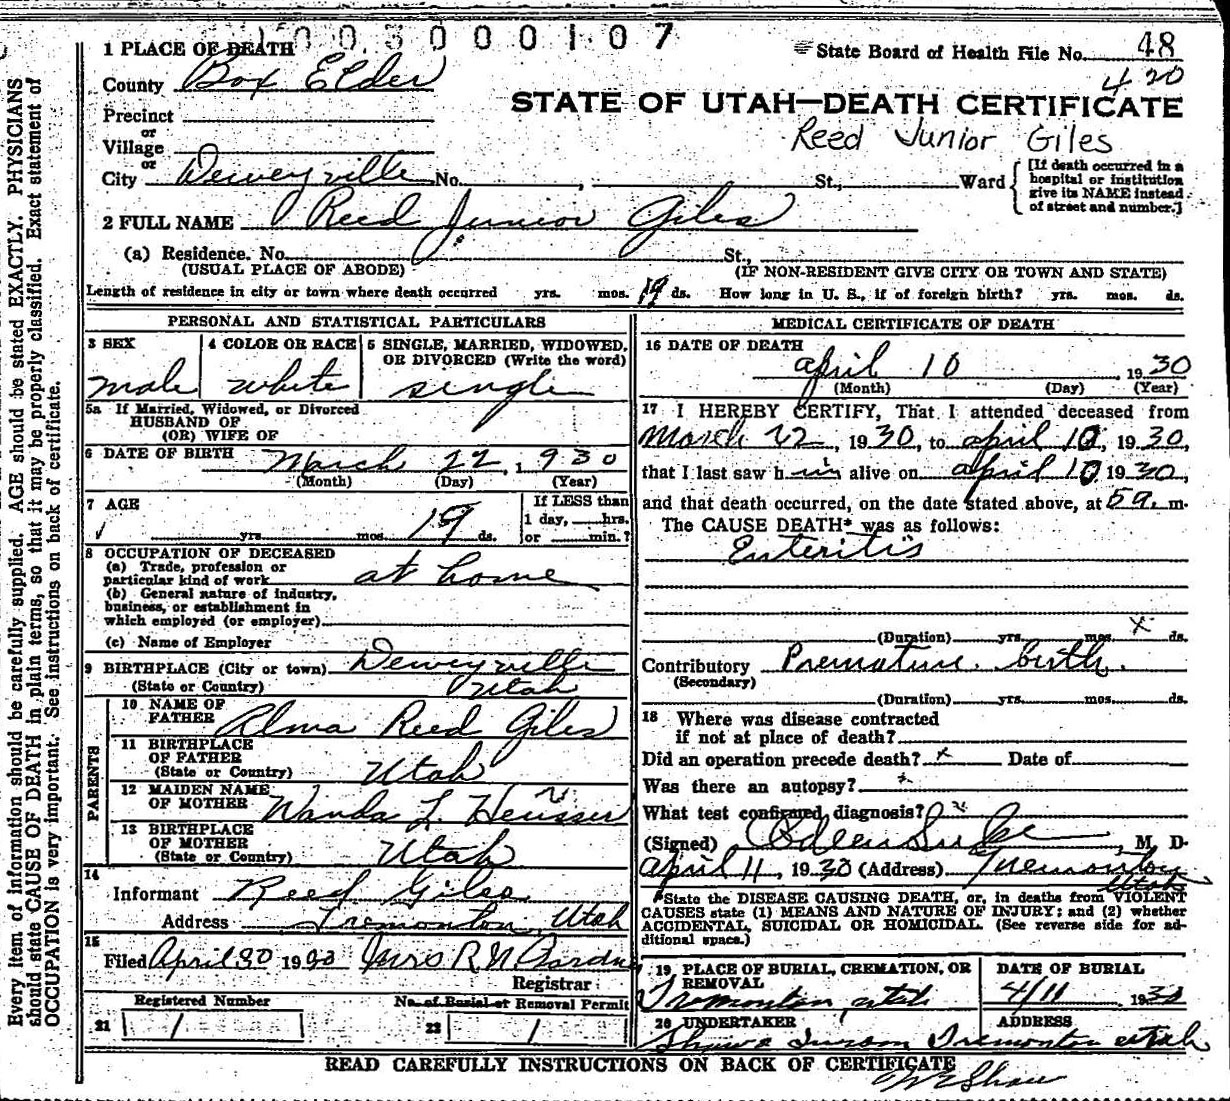 0 0 3 0 0 0 1 0 7
1 PLACE OF DEATH
State Board of Health File No. 48
County Box Elder
420
STATE OF UTAH—DEATH CERTIFICATE
Precinct
or
Village
Reed Junior Giles
or
City Deweyville No. , St., Ward
[If death occurred in a
hospital or institution
give its NAME instead
of street and number.]
2 FULL NAME Reed Junior Giles
(a) Residence. No. St.,
(USUAL PLACE OF ABODE) (IF NON-RESIDENT GIVE CITY OR TOWN AND STATE)
Length of residence in city or town where death occurred yrs. mos. 19 ds. How long in U. S., if of foreign birth? yrs. mos. ds.
PERSONAL AND STATISTICAL PARTICULARS
3 SEX
male
4 COLOR OR RACE
white
5 SINGLE, MARRIED, WIDOWED,
OR DIVORCED (Write the word)
single
5a If Married, Widowed, or Divorced
HUSBAND OF
(OR) WIFE OF
6 DATE OF BIRTH March 22, 1930
(Month) (Day) (Year)
7 AGE
yrs. mos. 19 ds.
If LESS than
1 day, hrs.
or min.?
8 OCCUPATION OF DECEASED
(a) Trade, profession or
particular kind of work at home
(b) General nature of industry,
business, or establishment in
which employed (or employer)
(c) Name of Employer
9 BIRTHPLACE (City or town) Deweyville
(State or Country) Utah
PARENTS
10 NAME OF
FATHER Alma Reed Giles
11 BIRTHPLACE
OF FATHER
(State or Country) Utah
12 MAIDEN NAME
OF MOTHER Wanda L. Heusser
13 BIRTHPLACE
OF MOTHER
(State or Country) Utah
14
Informant Reed Giles
Address Tremonton, Utah
15
Filed April 30 1930 Mrs R N
Registrar
Registered Number
21 1
No. of Burial or Removal Permit
22 1
MEDICAL CERTIFICATE OF DEATH
16 DATE OF DEATH
april 10 , 1930
(Month) (Day) (Year)
17 I HEREBY CERTIFY, That I attended deceased from
March 22, 1930, to april 10, 1930,
that I last saw him alive on april 10 1930
and that death occurred, on the date stated above, at 5 a. m.
The CAUSE DEATH* was as follows:
Enteritis
(Duration) yrs. mos. x ds.
Contributory Premature birth.
(Secondary)
(Duration) yrs. mos. ds.
18 Where was disease contracted
if not at place of death?
Did an operation precede death? x Date of
Was there an autopsy? x
What test confirmed diagnosis?
(Signed) , M D.
april 11, 1930 (Address) Tremonton
Utah
*State the DISEASE CAUSING DEATH, or, in deaths from VIOLENT
CAUSES state (1) MEANS AND NATURE OF INJURY; and (2) whether
ACCIDENTAL, SUICIDAL OR HOMICIDAL. (See reverse side for ad-
ditional space.)
19 PLACE OF BURIAL, CREMATION, OR
REMOVAL
Tremonton, utah
DATE OF BURIAL
4/11 , 1930
20 UNDERTAKER
ADDRESS
Tremonton utah
READ CAREFULLY INSTRUCTIONS ON BACK OF CERTIFICATE
Shaw
Every item of information should be carefully supplied. AGE should be stated EXACTLY. PHYSICIANS
should state CAUSE OF DEATH in plain terms, so that it may be properly classified. Exact statement of
OCCUPATION is very important. See instructions on back of certificate.